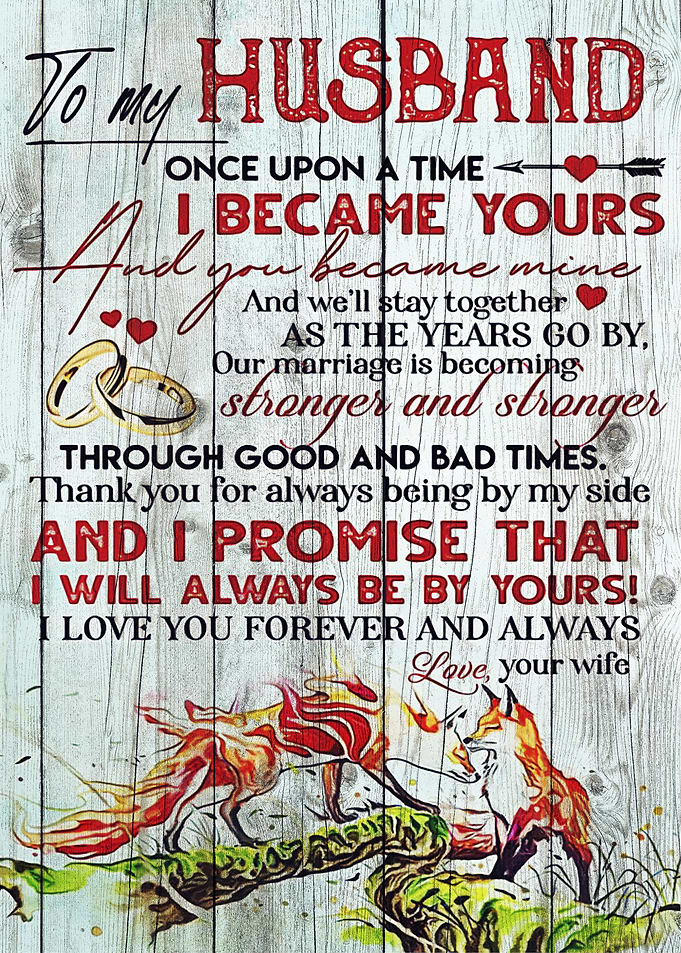 To my HUSBAND
ONCE UPON A TIME
I BECAME YOURS
And you became mine
And we'll stay together
AS THE YEARS GO BY,
Our marriage is becoming
stronger and stronger
THROUGH GOOD AND BAD TIMES.
Thank you for always being by my side
AND I PROMISE THAT
I WILL ALWAYS BE BY YOURS!
I LOVE YOU FOREVER AND ALWAYS
Love, your wife